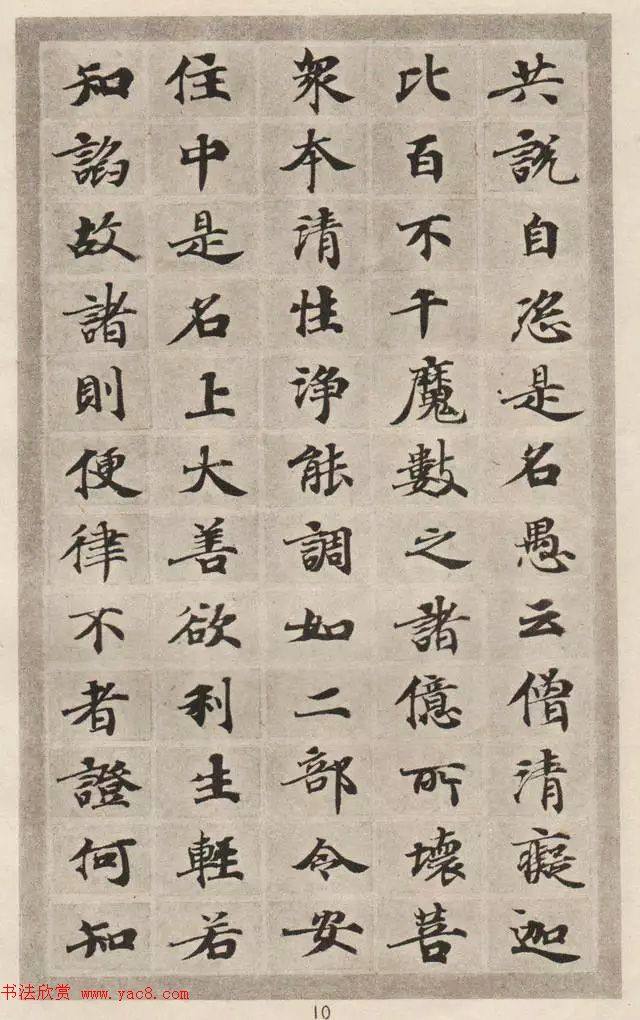 共說自恣是名愚云僧清癡迦
比百不千魔數之諸億所壞菩
眾本清性淨能調如二部令安
住中是名上大善欲利生輕若
知諂故諸則便律不者證何知
书法欣赏 www.yac8.com
10